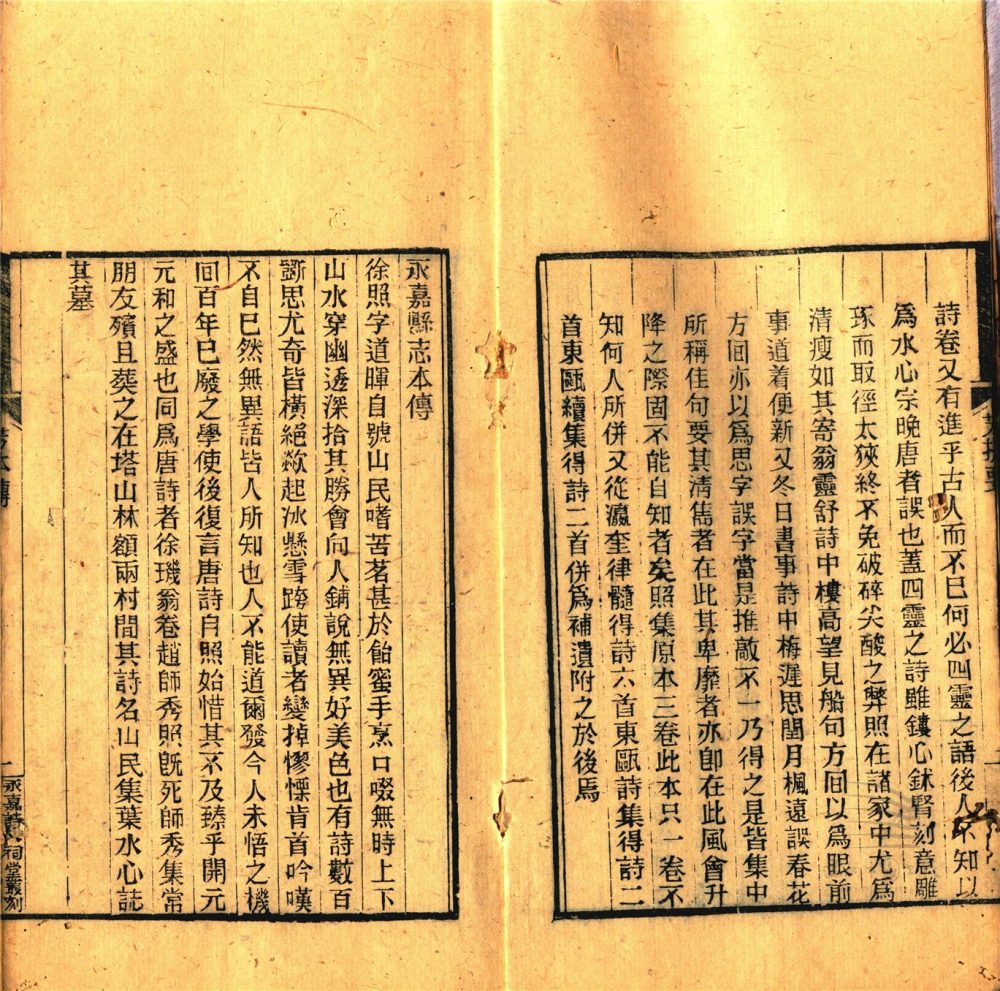 詩卷又有進乎古人而不已何必四靈之語後人不知以
爲水心宗晚唐者誤也蓋四靈之詩雖鏤心鉥腎刻意雕
琢而取徑太狹終不免破碎尖酸之弊照在諸家中尤爲
清瘦如其寄翁靈舒詩中樓高望見船句方回以爲眼前
事道着便新又冬日書事詩中梅遲思閏月楓遠誤春花
方回亦以爲思字誤字當是推敲不一乃得之是皆集中
所稱佳句要其清雋者在此其卑靡者亦卽在此風會升
降之際固不能自知者矣照集原本三卷此本只一卷不
知何人所併又從瀛奎律髓得詩六首東甌詩集得詩二
首東甌續集得詩二首併爲補遺附之於後焉
永嘉縣志本傳
徐照字道暉自號山民嗜苦茗甚於飴蜜手烹口啜無時上下
山水穿幽透深拾其勝會向人鋪說無異好美色也有詩數百
斵思尤奇皆橫絕欻起冰懸雪跨使讀者變掉憀慄肯首吟嘆
不自已然無異語皆人所知也人不能道爾發今人未悟之機
回百年已廢之學使後復言唐詩自照始惜其不及臻乎開元
元和之盛也同爲唐詩者徐璣翁卷趙師秀照旣死師秀集常
朋友殯且葬之在塔山林額兩村間其詩名山民集葉水心誌
其墓
本傳
一
永嘉詩人祠堂叢刻